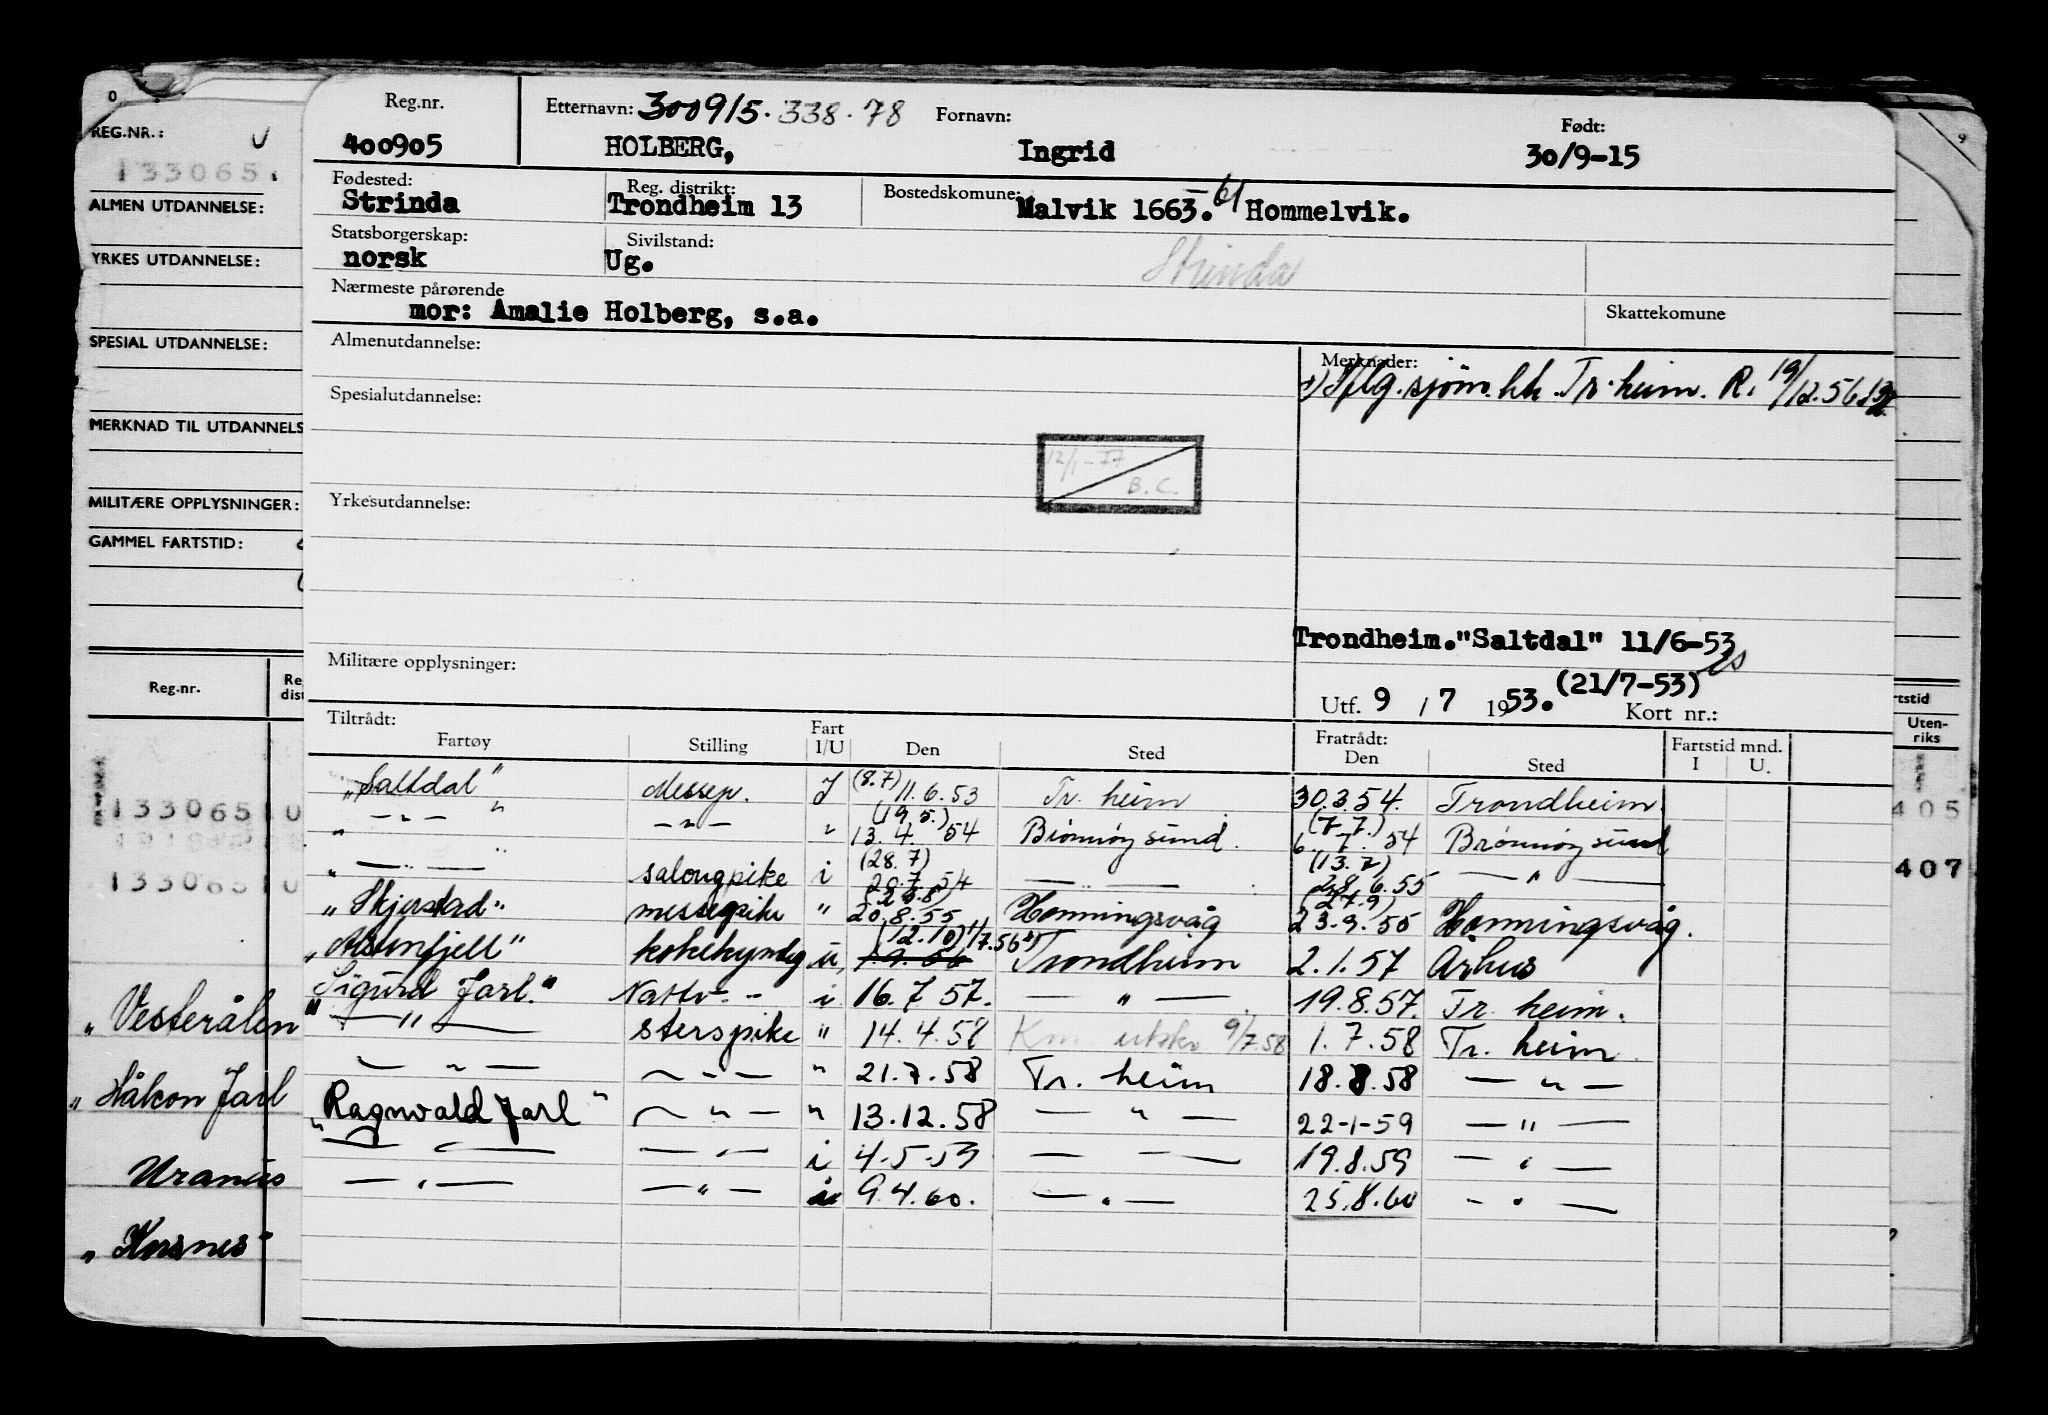 Reg.nr. Etternavn: 300915. 338.78 Fornavn: Født:
400905 HOLBERG, Ingrid 30/9-15
Fødested: Reg. distrikt: Bostedskomune:
Strinda Trondheim 13 Malvik 1663. 61 Hommelvik.
Statsborgerskap: Sivilstand:
norsk Ug. Strinda
Nærmeste pårørende
mor: Amalie Holberg, s.a. Skattekomune
Almenutdannelse: Merknader:
sjøm. Tr.heim. R. 19/12.56
Spesialutdannelse:
12/1-77
B.C.
Yrkesutdannelse:
Trondheim."Saltdal" 11/6-53
Militære opplysninger: (21/7-53)
Utf. 9 / 7 1953. Kort nr.:
Tiltrådt: Fart Fratrådt: Fartstid mnd.
Fartøy Stilling I/U Den Sted Den Sted I U.
"Saltdal" Messep. I (8.7) 11.6.53 Tr. heim 30.3.54. Trondheim.
" — " — " — " — " (19.5.) 13.4.54 Brønnøysund. (7.7.) 6.7.54 Brønnøysund
" — " salongpike i (28.7) 20.7.54 — " — (13.7) 28.6.55 — " —
"Skjerstad" messepike " 20.8.55 Honningsvåg (27.9) 23.9.55 Honningsvåg.
kokekyndig u. (12.10) 1/7.56 Trondheim 2.1.57 Århus
"Sigurd Jarl." i 16.7 57. — " — 19.8.57. Tr. heim.
— " — sterspike " 14.4.58 9/7.58 1.7.58 Tr. heim.
— " — — " — " 21.7.58 Tr. heim 18.8.58 — " —
"Ragnvald Jarl" — " — " 13.12.58 — " — 22-1-59 — " —
— " — — " — i 4-5-59 — " — 19.8.59 — " —
— " — — " — 9.4.60. — " — 25.8.60 — " —
O
REG.NR.: U
133065
ALMEN UTDANNELSE:
YRKES UTDANNELSE:
SPESIAL UTDANNELSE:
MERKNAD TIL UTDANNELS
MILITÆRE OPPLYSNINGER:
GAMMEL FARTSTID:
Reg.nr. Re
dist
133065 U
133065 U
"Vesterålen"
"Håkon Jarl
Uranus
9
rtstid
Uten-
riks
405
407